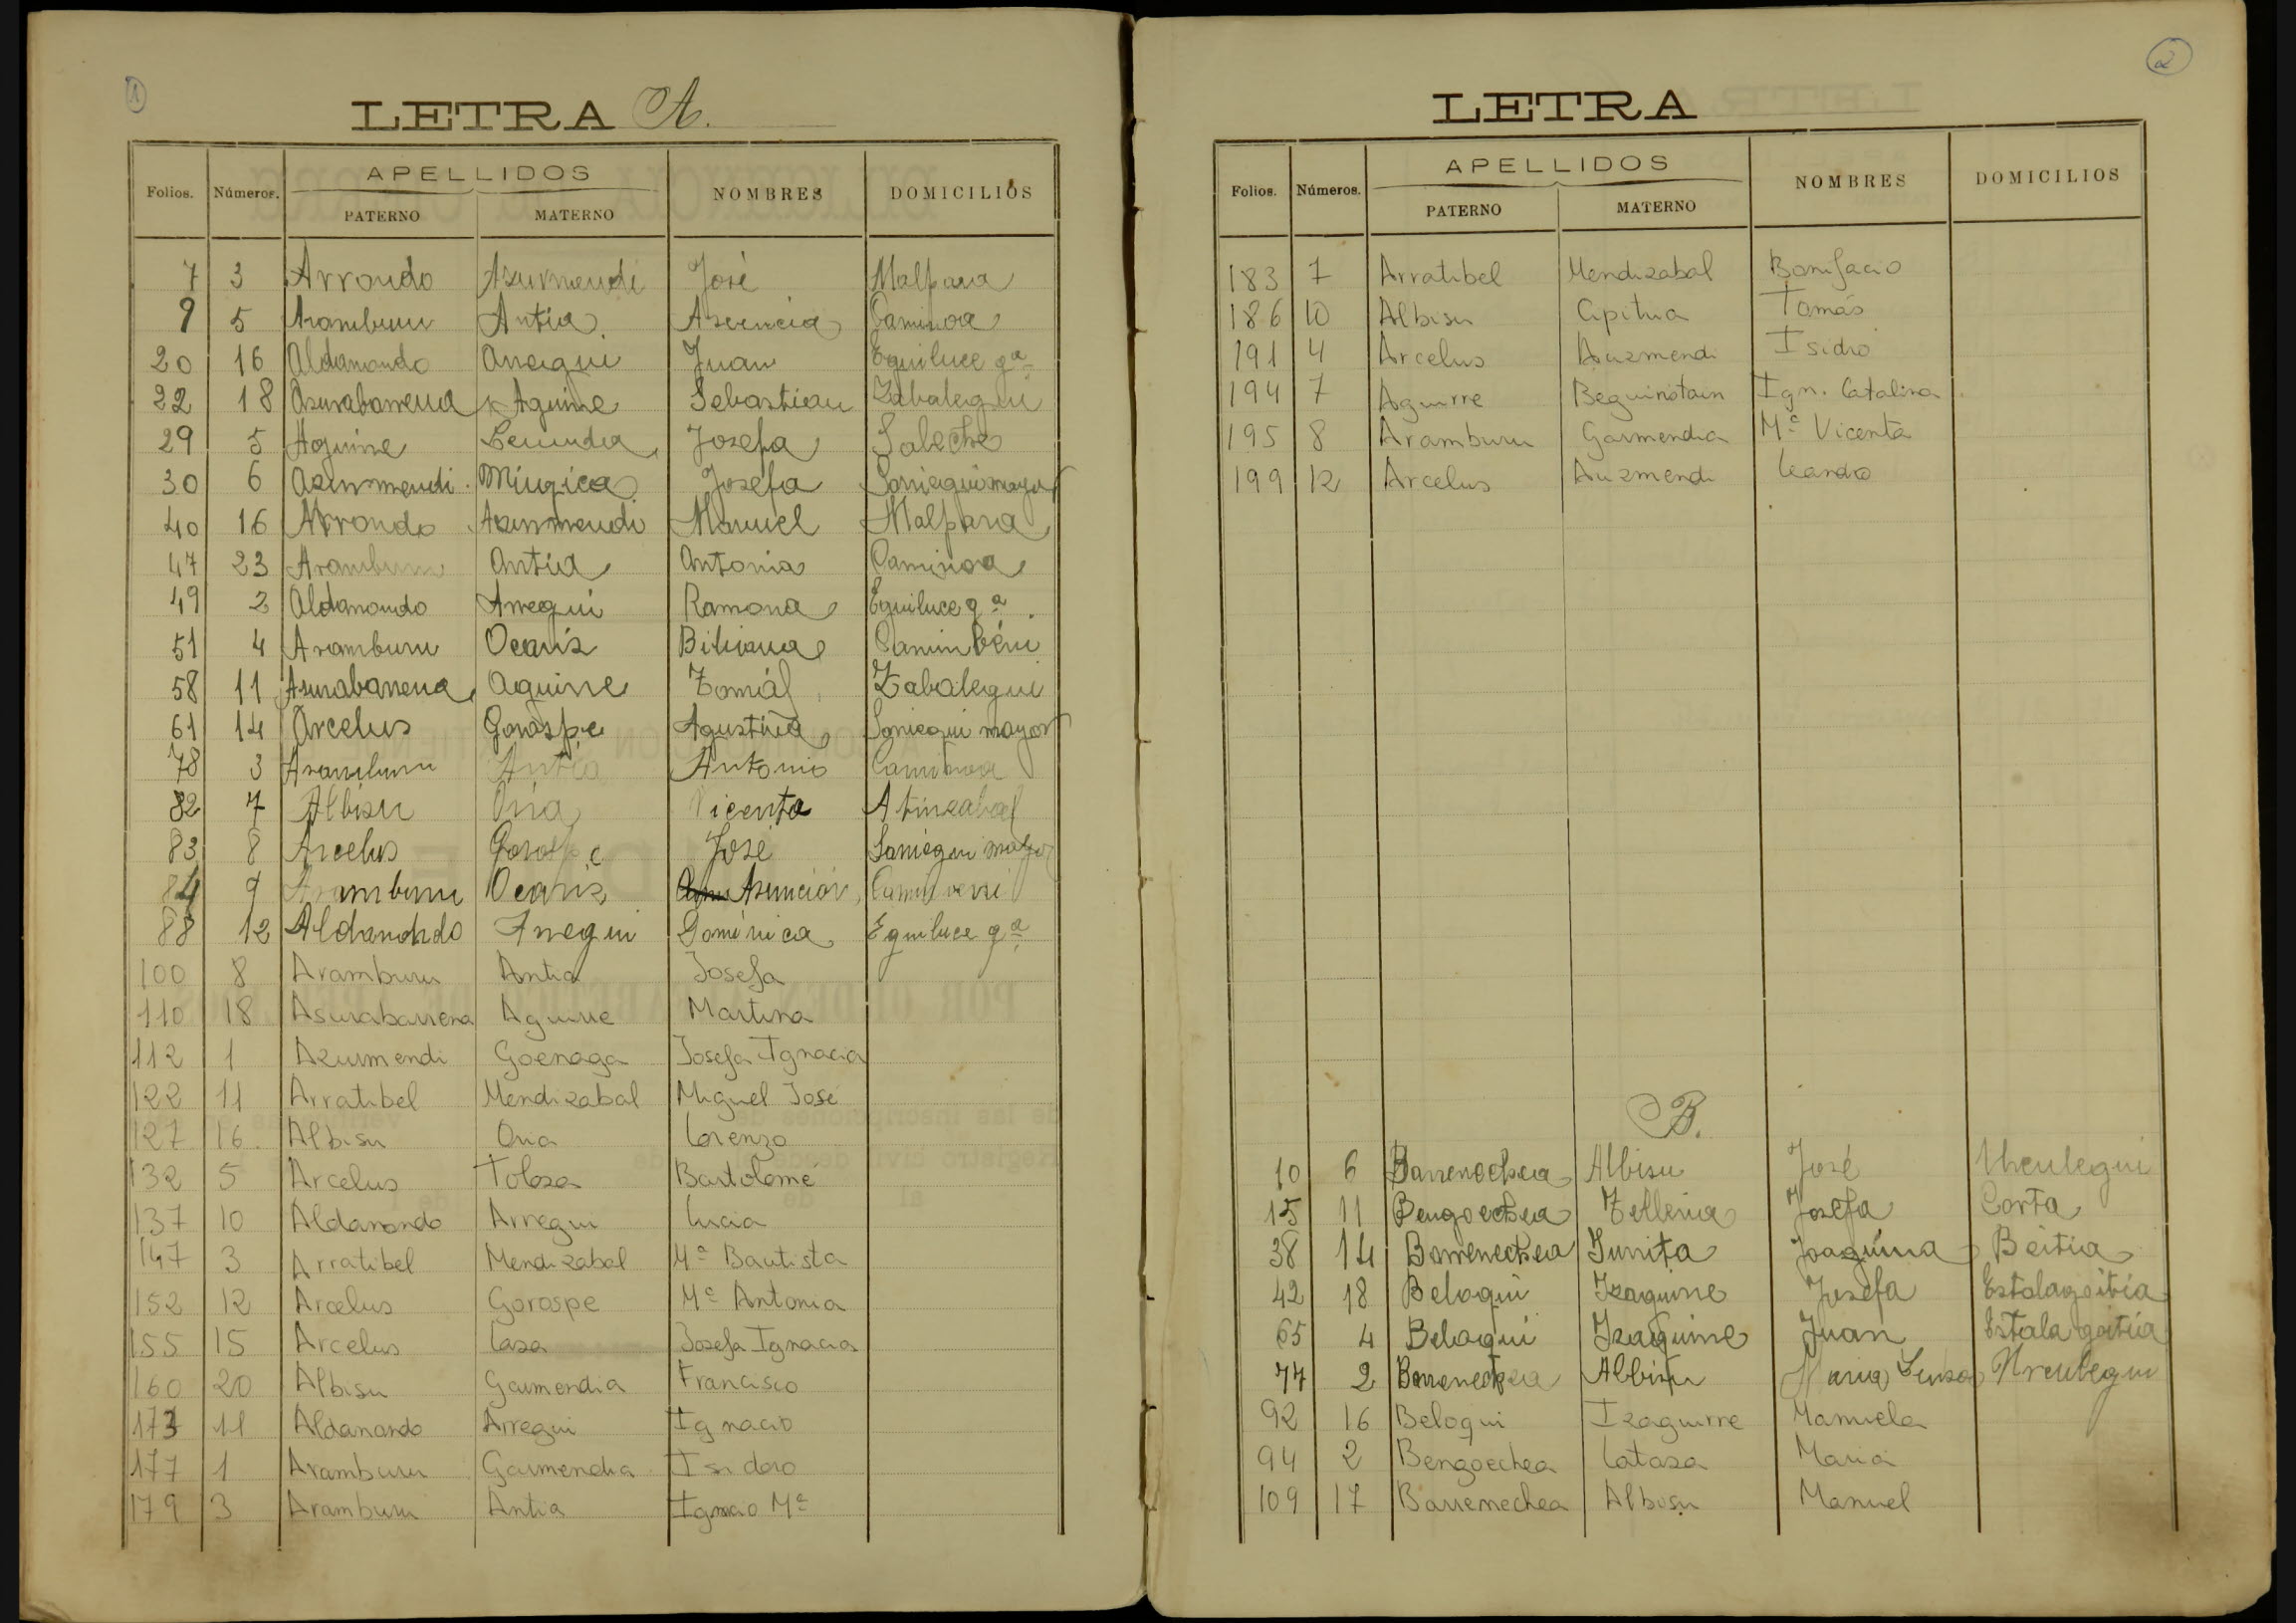 1
LETRA A.
Folios. Números. APELLIDOS NOMBRES DOMICILIOS
PATERNO MATERNO
7 3 Arrondo Azurmendi José Malpara
9 5 Aramburu Antia Ascencia Caminoa
20 16 Aldanondo Arregui Juan Eguiluce gª
22 18 Asurabarrena Aguirre Sebastian Zabalegui
29 5 Aguirre Josefa Saleche
30 6 Azurmendi Múgica Josefa Sorriegui mayor
40 16 Arrondo Azurmendi Manuel Malpara
47 23 Aramburu Antia Antonia Caminoa
49 2 Aldanondo Arregui Ramona Eguiluce gª
51 4 Aramburu Ocariz Bibiana Caminberri
58 11 Asurabarrena Aguirre Tomás Zabalegui
61 14 Arcelus Gorospe Agustina Sorriegui mayor
78 3 Aramburu Antia Antonio Caminoa
82 7 Albisu Oria Vicenta Atinzabal
83 8 Arcelus Gorospe José Sarriegui mayor
84 9 Aramburu Ocariz Asunción Caminverri
88 12 Aldanondo Arregui Dominica Eguiluce gª
100 8 Aramburu Antia Josefa
110 18 Asurabarrena Aguirre Martina
112 1 Azurmendi Goenaga Josefa Ignacia
122 11 Arratibel Mendizabal Miguel José
127 16 Albisu Oria Lorenzo
132 5 Arcelus Tolosa Bartolomé
137 10 Aldanondo Arregui Lucia
147 3 Arratibel Mendizabal Mª Bautista
152 12 Arcelus Gorospe Mª Antonia
155 15 Arcelus Lasa Josefa Ignacia
160 20 Albisu Garmendia Francisco
173 11 Aldanondo Arregui Ignacio
177 1 Aramburu Garmendia Isidoro
179 3 Aramburu Antia Ignacio Mª
2
LETRA
Folios. Números. APELLIDOS NOMBRES DOMICILIOS
PATERNO MATERNO
183 7 Arratibel Mendizabal Bonifacio
186 10 Albisu Apitua Tomás
191 4 Arcelus Auzmendi Isidro
194 7 Aguirre Beguiristain Ign. Catalina
195 8 Aramburu Garmendia Mª Vicenta
199 12 Arcelus Auzmendi Leandro
B.
10 6 Barrenechea Albisu José Urculegui
15 11 Bengoechea Telleria Josefa Corta
38 14 Barrenechea Iurrita Joaquina Beitia
42 18 Beloqui Izaguirre Josefa Estalagoitia
65 4 Beloqui Izaguirre Juan Estalagoitia
77 2 Barrenechea Albisu Maria Urculegui
92 16 Beloqui Izaguirre Manuela
94 2 Bengoechea Lataza Maria
109 17 Barrenechea Albisu Manuel